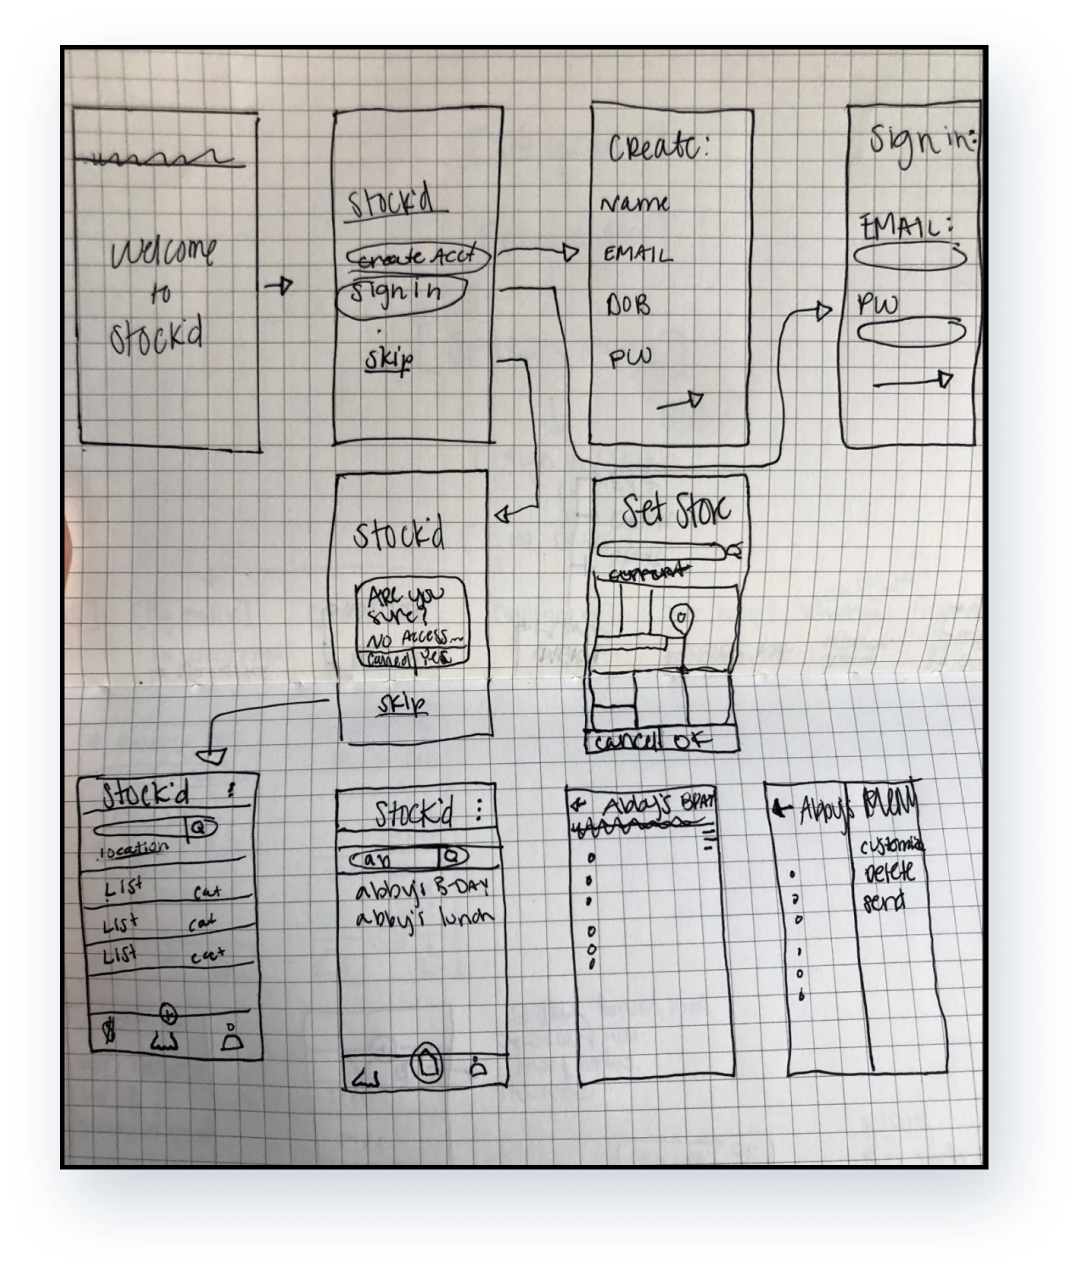 Welcome
to
Stock'd
Stock'd
Create Acct
Sign in
Skip
Create:
Name
EMAIL
DOB
PW
Sign in:
EMAIL:
PW
Stock'd
Are you
sure?
NO Access...
Cancel Yes
Skip
Set Store
support
cancel OK
Stock'd
location
List cat
List cat
List cat
$
Stock'd
abby's B-DAY
abby's lunch
Abby's BDAY
Abby's
customize
Delete
send